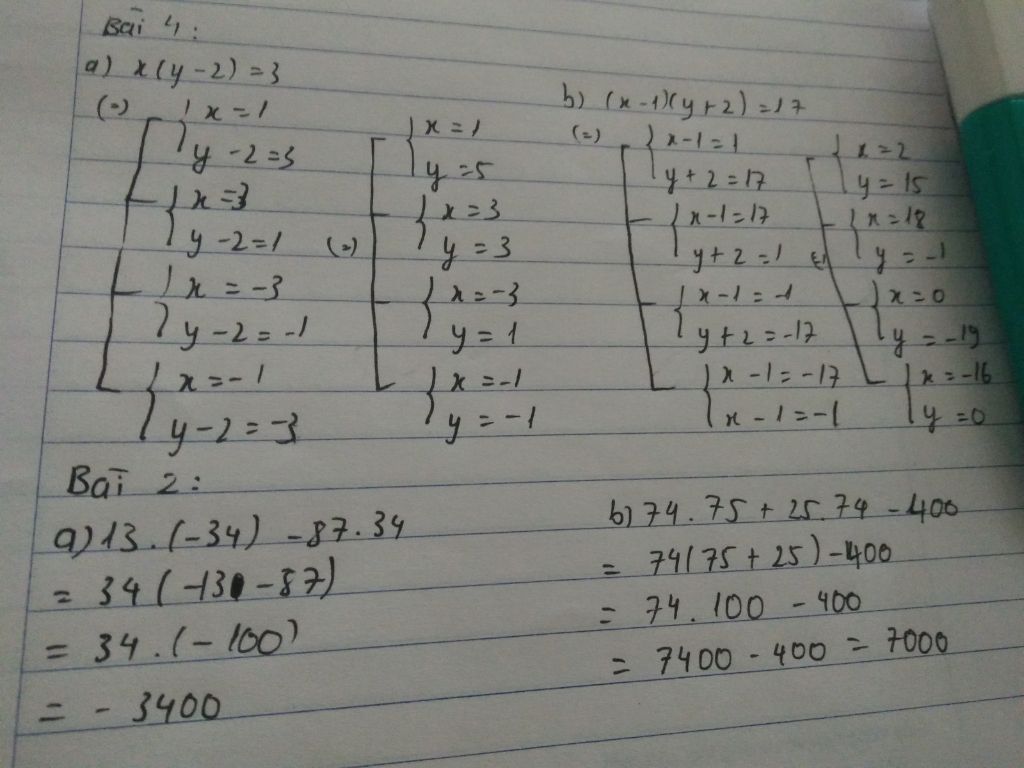 Bài 4:
a) x(y-2)=3
(=) { x=1
y-2=3
{ x=3
y-2=1
{ x=-3
y-2=-1
{ x=-1
y-2=-3
(=) { x=1
y=5
{ x=3
y=3
{ x=-3
y=1
{ x=-1
y=-1
b) (x-1)(y+2)=17
(=) { x-1=1
y+2=17
{ x-1=17
y+2=1
{ x-1=-1
y+2=-17
{ x-1=-17
x-1=-1
{ x=2
y=15
{ x=18
y=-1
{ x=0
y=-19
{ x=-16
y=0
Bài 2:
a) 13.(-34) -87.34
= 34(-13-87)
= 34.(-100)
= -3400
b) 74.75+25.74-400
= 74(75+25)-400
= 74.100-400
= 7400-400=7000